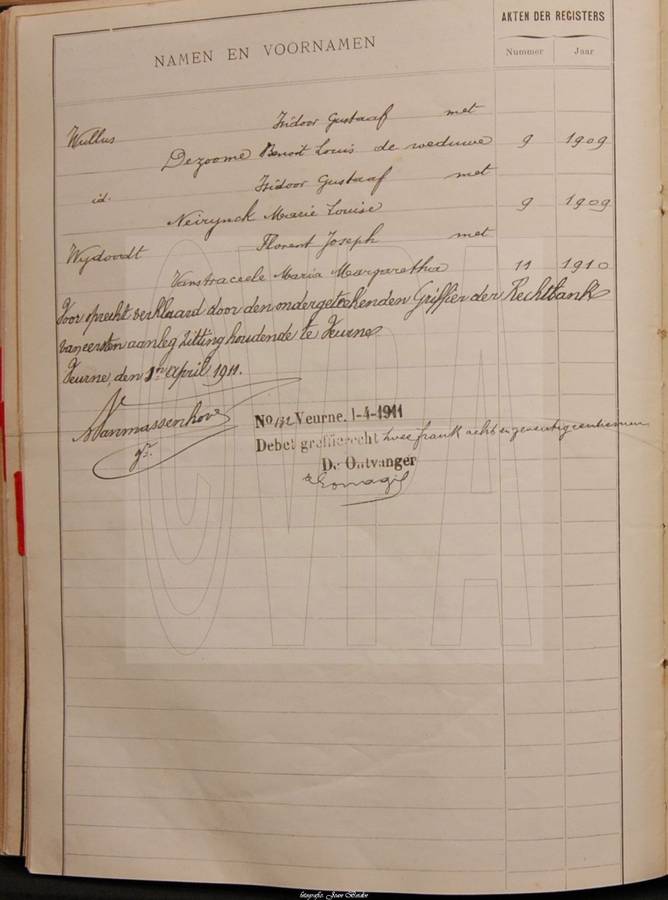 AKTEN DER REGISTERS
NAMEN EN VOORNAMEN
Nummer Jaar
Wullus Isidoor Gustaaf met
Dezoome Benoit Louis de weduwe 9 1909
id. Isidoor Gustaaf met
Neirynck Marie Louise 9 1909
Wydoodt Florent Joseph met
Vanstraceele Maria Margaretha 11 1910
Voor oprecht verklaard door den ondergeteekenden Griffier der Rechtbank
van eersten aanleg zitting houdende te Veurne
Veurne, den 1n April 1911.
Vanmassenhove
gr.
No 132 Veurne, 1-4-1911
Debet greffierecht twee frank acht en zeventig centiemen
De Ontvanger
CVBA
fotografie: Joan Binder